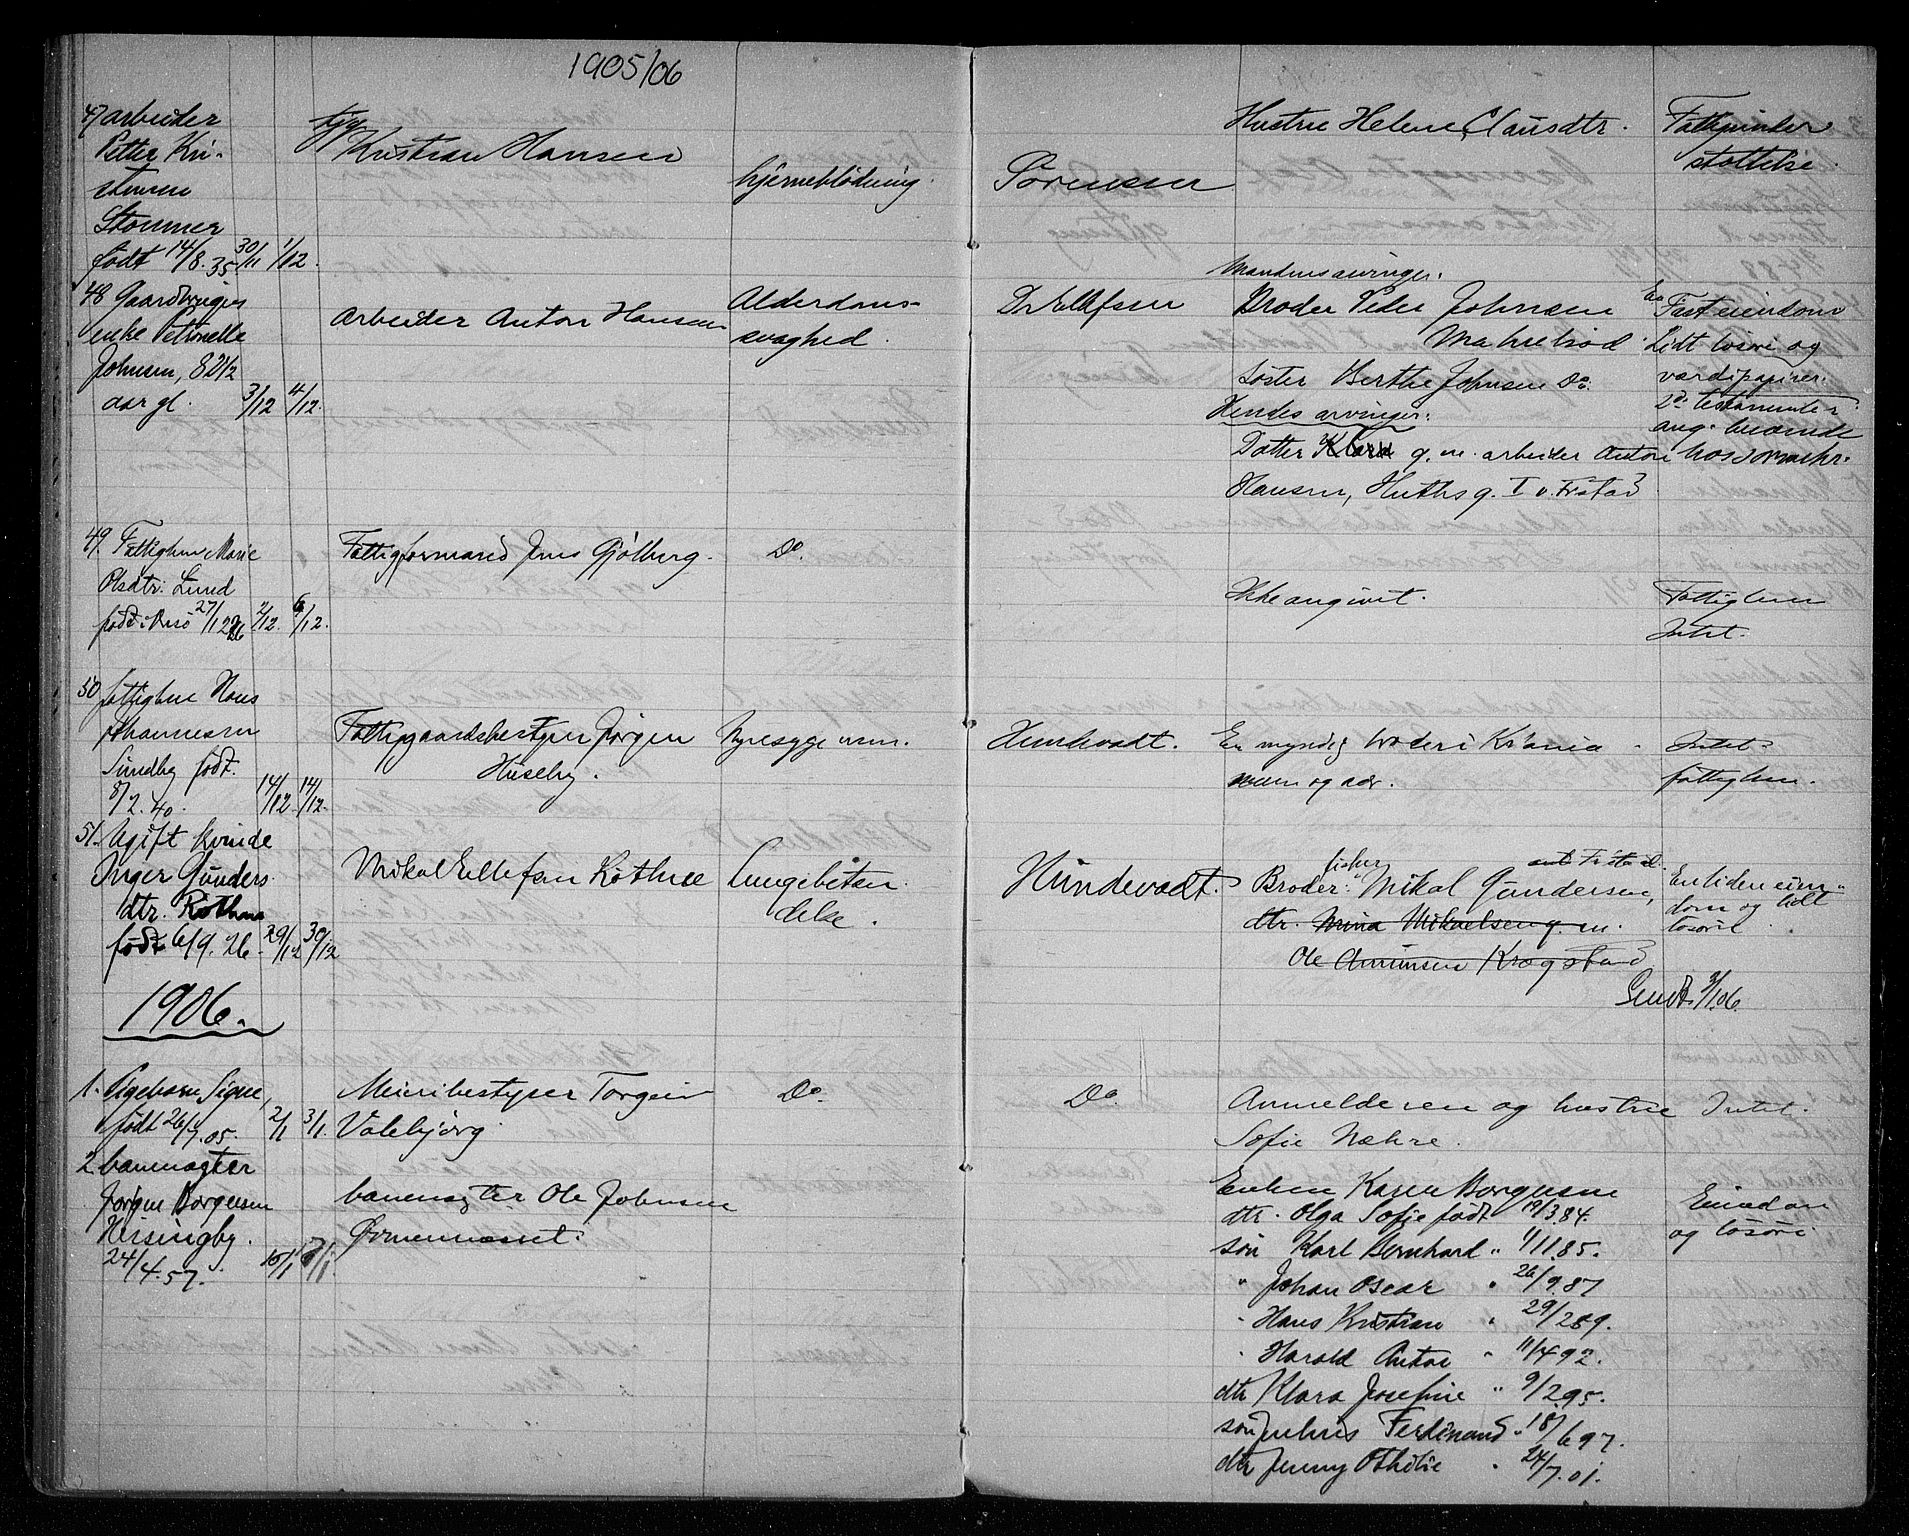 1905/06
47 arbeider
Petter Kri-
stensen
Stommer
født 14/8. 35. 30/11 1/12.
Kristian Hansen
hjerneblødning.
Sørensen
Hustru Helene Clausdtr.
Fattigunder
støttelse.
48 Gaardbruger
enke Petronelle
Johnsen, 82 1/2
aar gl. 3/12 4/12.
Arbeider Anton Hansen
Alderdoms-
svaghed.
Dr Ellefsen
Mandens arvinger.
Broder Peder Johnsen
Søster Berthe Johnsen Do.
Hendes arvinger:
Datter Klara g. m. arbeider Anton
Hansen, Huthsg. I v. Fr.stad
En Fast eiendom
Lidt løsøre og
værdipapirer.
2de testamenter
ang. beroende
hos
49. Fattiglem Marie
Olsdtr. Lund
født i 27/12 26 2/12. 6/12.
Fattigformand Jens Gjølberg.
Do.
Ikke angivet.
Fattiglem
Intet.
50 fattiglem Hans
Johannesen
Sundby født.
8/2. 40. 14/12 14/12.
Fattiggaardsbestyrer Jørgen
Huseby.
Nyresyge
Hundevadt.
En myndig broder i Kr.ania
navn og adr.
Intet
fattiglem.
51. Ugift kvinde
Inger Gunders
dtr.
født 6/9. 26. 29/12 30/12
Mikal Ellefsen
Lungebetæn
delse.
Hundevadt.
Broder: fisker Mikal Gundersen, Fr.stad.
dtr. Mina Mikaelsen g. m.
Ole Amundsen Krogstad
En liden eien
dom og lidt
løsøre.
Sendt 3/1 06.
1906.
1. Pigebarn Signe,
født 26/7. 05. 2/1 3/1.
Meieribestyrer Torgeir
Valebjørg
Do.
Do.
Anmelderen og hustru
Sofie Næhre.
Intet.
2 banevogter
Jørgen Borgersen
Hersingby.
24/4. 57.
banevogter Ole Johnsen
Ørmennæsset.
Enken Karen Borgersen
dtr. Olga Sofie født 19/3 84.
søn Karl Bernhard " 1/11. 85.
" Johan Oscar " 26/9. 87
" Hans Kristian " 29/2 89.
" Harald Anton " 11/4 92.
dtr Klara Josefine " 9/2. 95.
søn Julius Ferdinand " 18/6 97.
dtr Jenny Othilie " 24/7. 01.
Eiendom
og løsøre